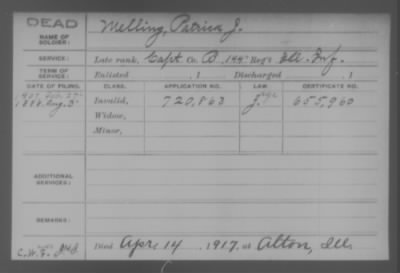 DEAD
NAME OF SOLDIER:
Melling, Patrick J.
SERVICE:
Late rank, Capt. Co. D, 144" Reg't Ill. Inf.
TERM OF SERVICE:
Enlisted , 1 Discharged , 1
DATE OF FILING. CLASS. APPLICATION NO. LAW. CERTIFICATE NO.
1907 Feb. 27
1889 Aug. 5 Invalid, 720,863 655,960
Widow,
Minor,
ADDITIONAL SERVICES:
REMARKS:
C.W.F.
Died Apr. 14 1917, at Alton, Ill.